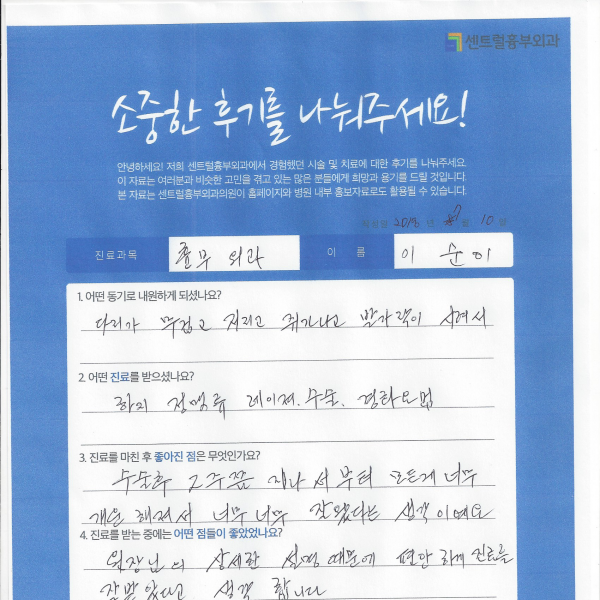 센트럴흉부외과
소중한 후기를 나눠주세요!
안녕하세요! 저희 센트럴흉부외과에서 경험했던 시술 및 치료에 대한 후기를 나눠주세요.
이 자료는 여러분과 비슷한 고민을 겪고 있는 많은 분들에게 희망과 용기를 드릴 것입니다.
본 자료는 센트럴흉부외과의원이 홈페이지와 병원 내부 홍보자료로도 활용될 수 있습니다.
2018 년 월 10 일
진료과목 흉부 외과 이 름 이 순이
1. 어떤 동기로 내원하게 되셨나요?
다리가 무겁고 저리고 쥐가나고 발가락이 시려서
2. 어떤 진료를 받으셨나요?
하지 정맥류 레이져. 수술. 경화요법
3. 진료를 마친 후 좋아진 점은 무엇인가요?
수술후 2주쯤 지나서부터 모든게 너무
개운해져서 너무너무 잘했다는 생각이에요
4. 진료를 받는 중에는 어떤 점들이 좋았었나요?
원장님의 상세한 설명 때문에 편안하게 진료를
잘받았다고 생각 합니다